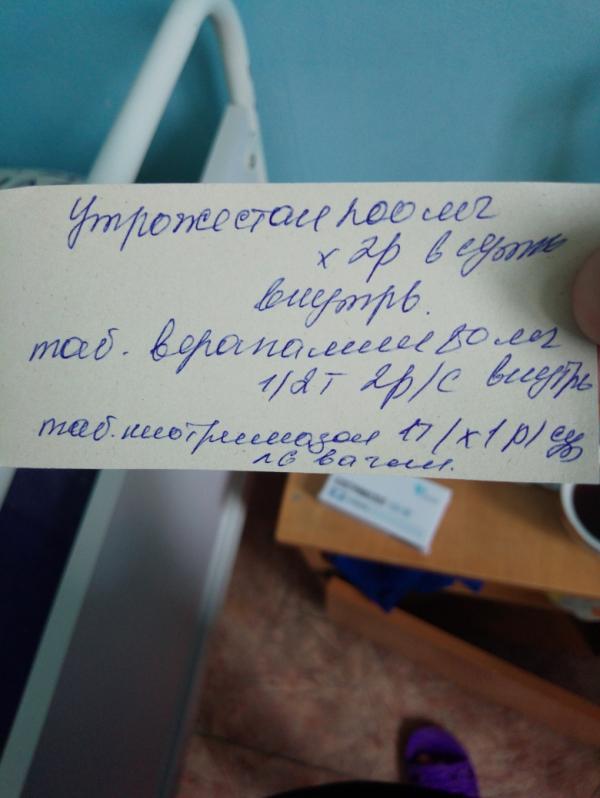 Утрожестан 200 мг
х 2р в сутки
внутрь.
таб. верапамил 80 мг
1/2т 2р/с внутрь
таб. клотримазол 1т/х1р/сут
vagin.